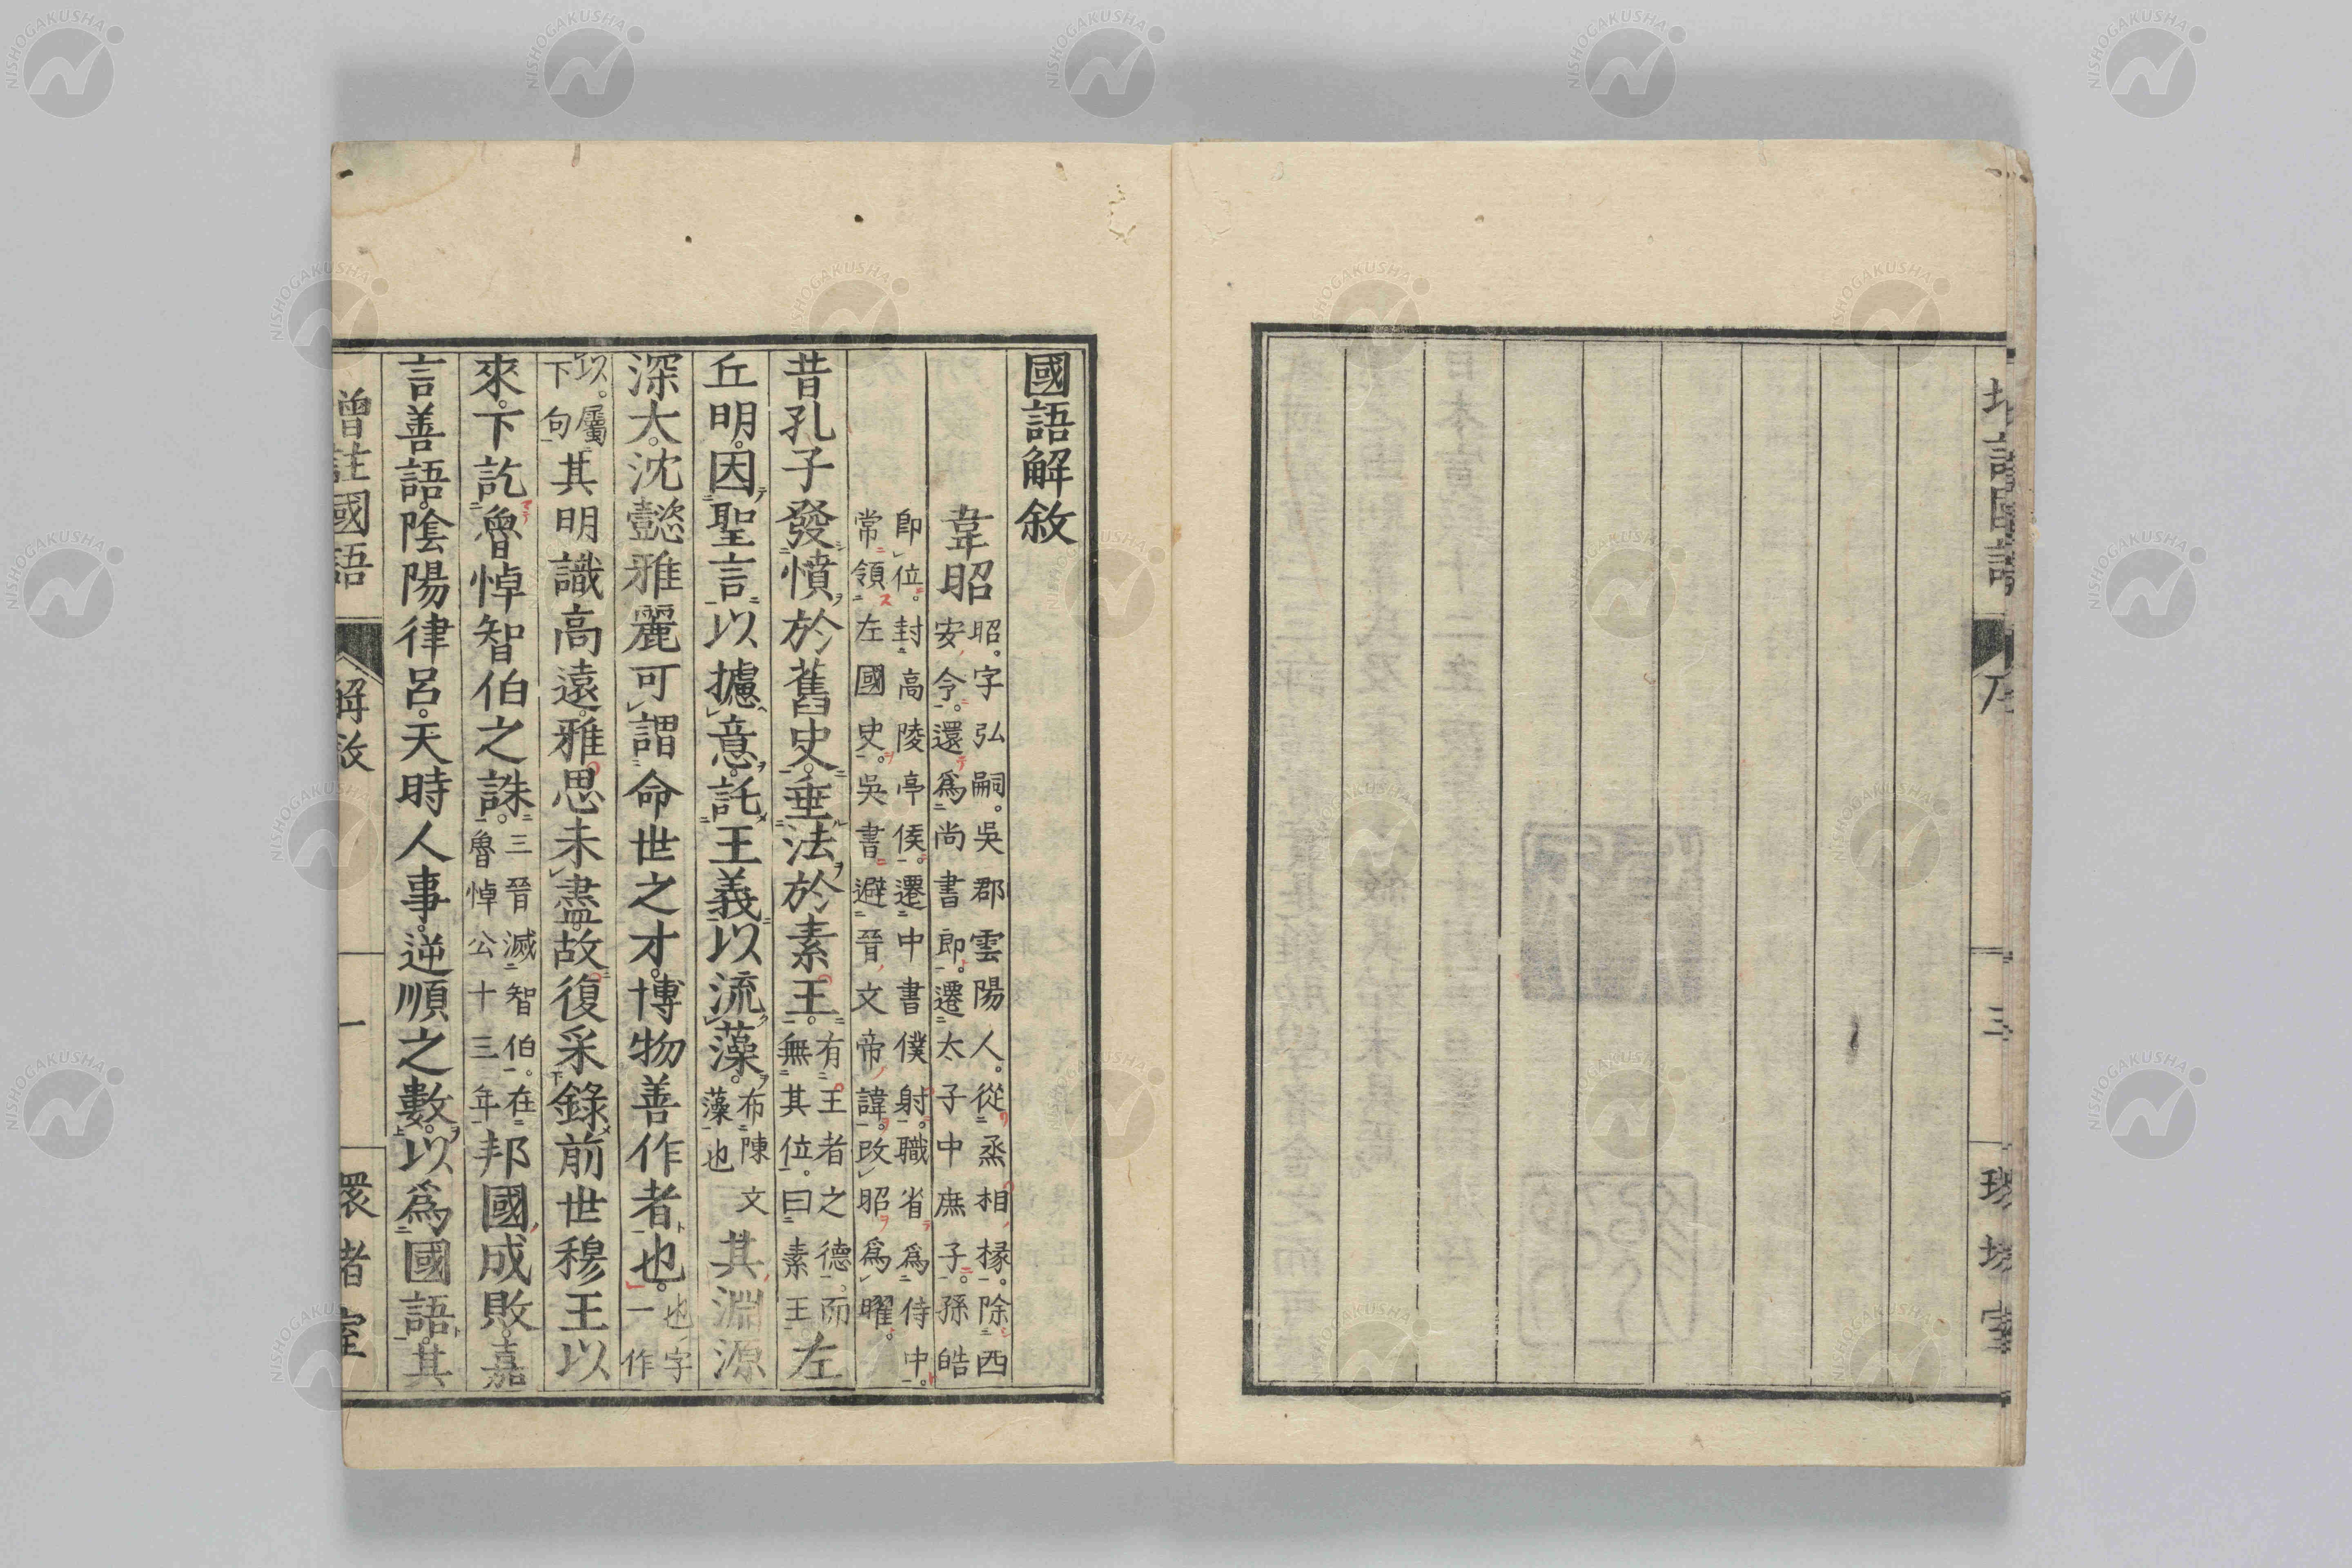 國語解敘
韋昭 昭字弘嗣吳郡雲陽人從烝相掾除西
安令還爲尚書郎遷太子中庶子孫皓
卽位封高陵亭侯遷中書僕射職省爲侍中
常領左國史吳書避晉文帝諱改昭爲曜
昔孔子發憤於舊史垂法於素王 有王者之德而 無其位曰素王 左
丘明因聖言以攄意託王義以流藻 布陳文 藻也 其淵源
深大沈懿雅麗可謂命世之才博物善作者也 也字 一作
以屬 下句 其明識高遠雅思未盡故復采錄前世穆王以
來下訖魯悼智伯之誅 三晉滅智伯在 魯悼公十三年 邦國成敗嘉
言善語陰陽律呂天時人事逆順之數以爲國語其
增註國語 解敘 一 環堵室
NISHOGAKUSHA